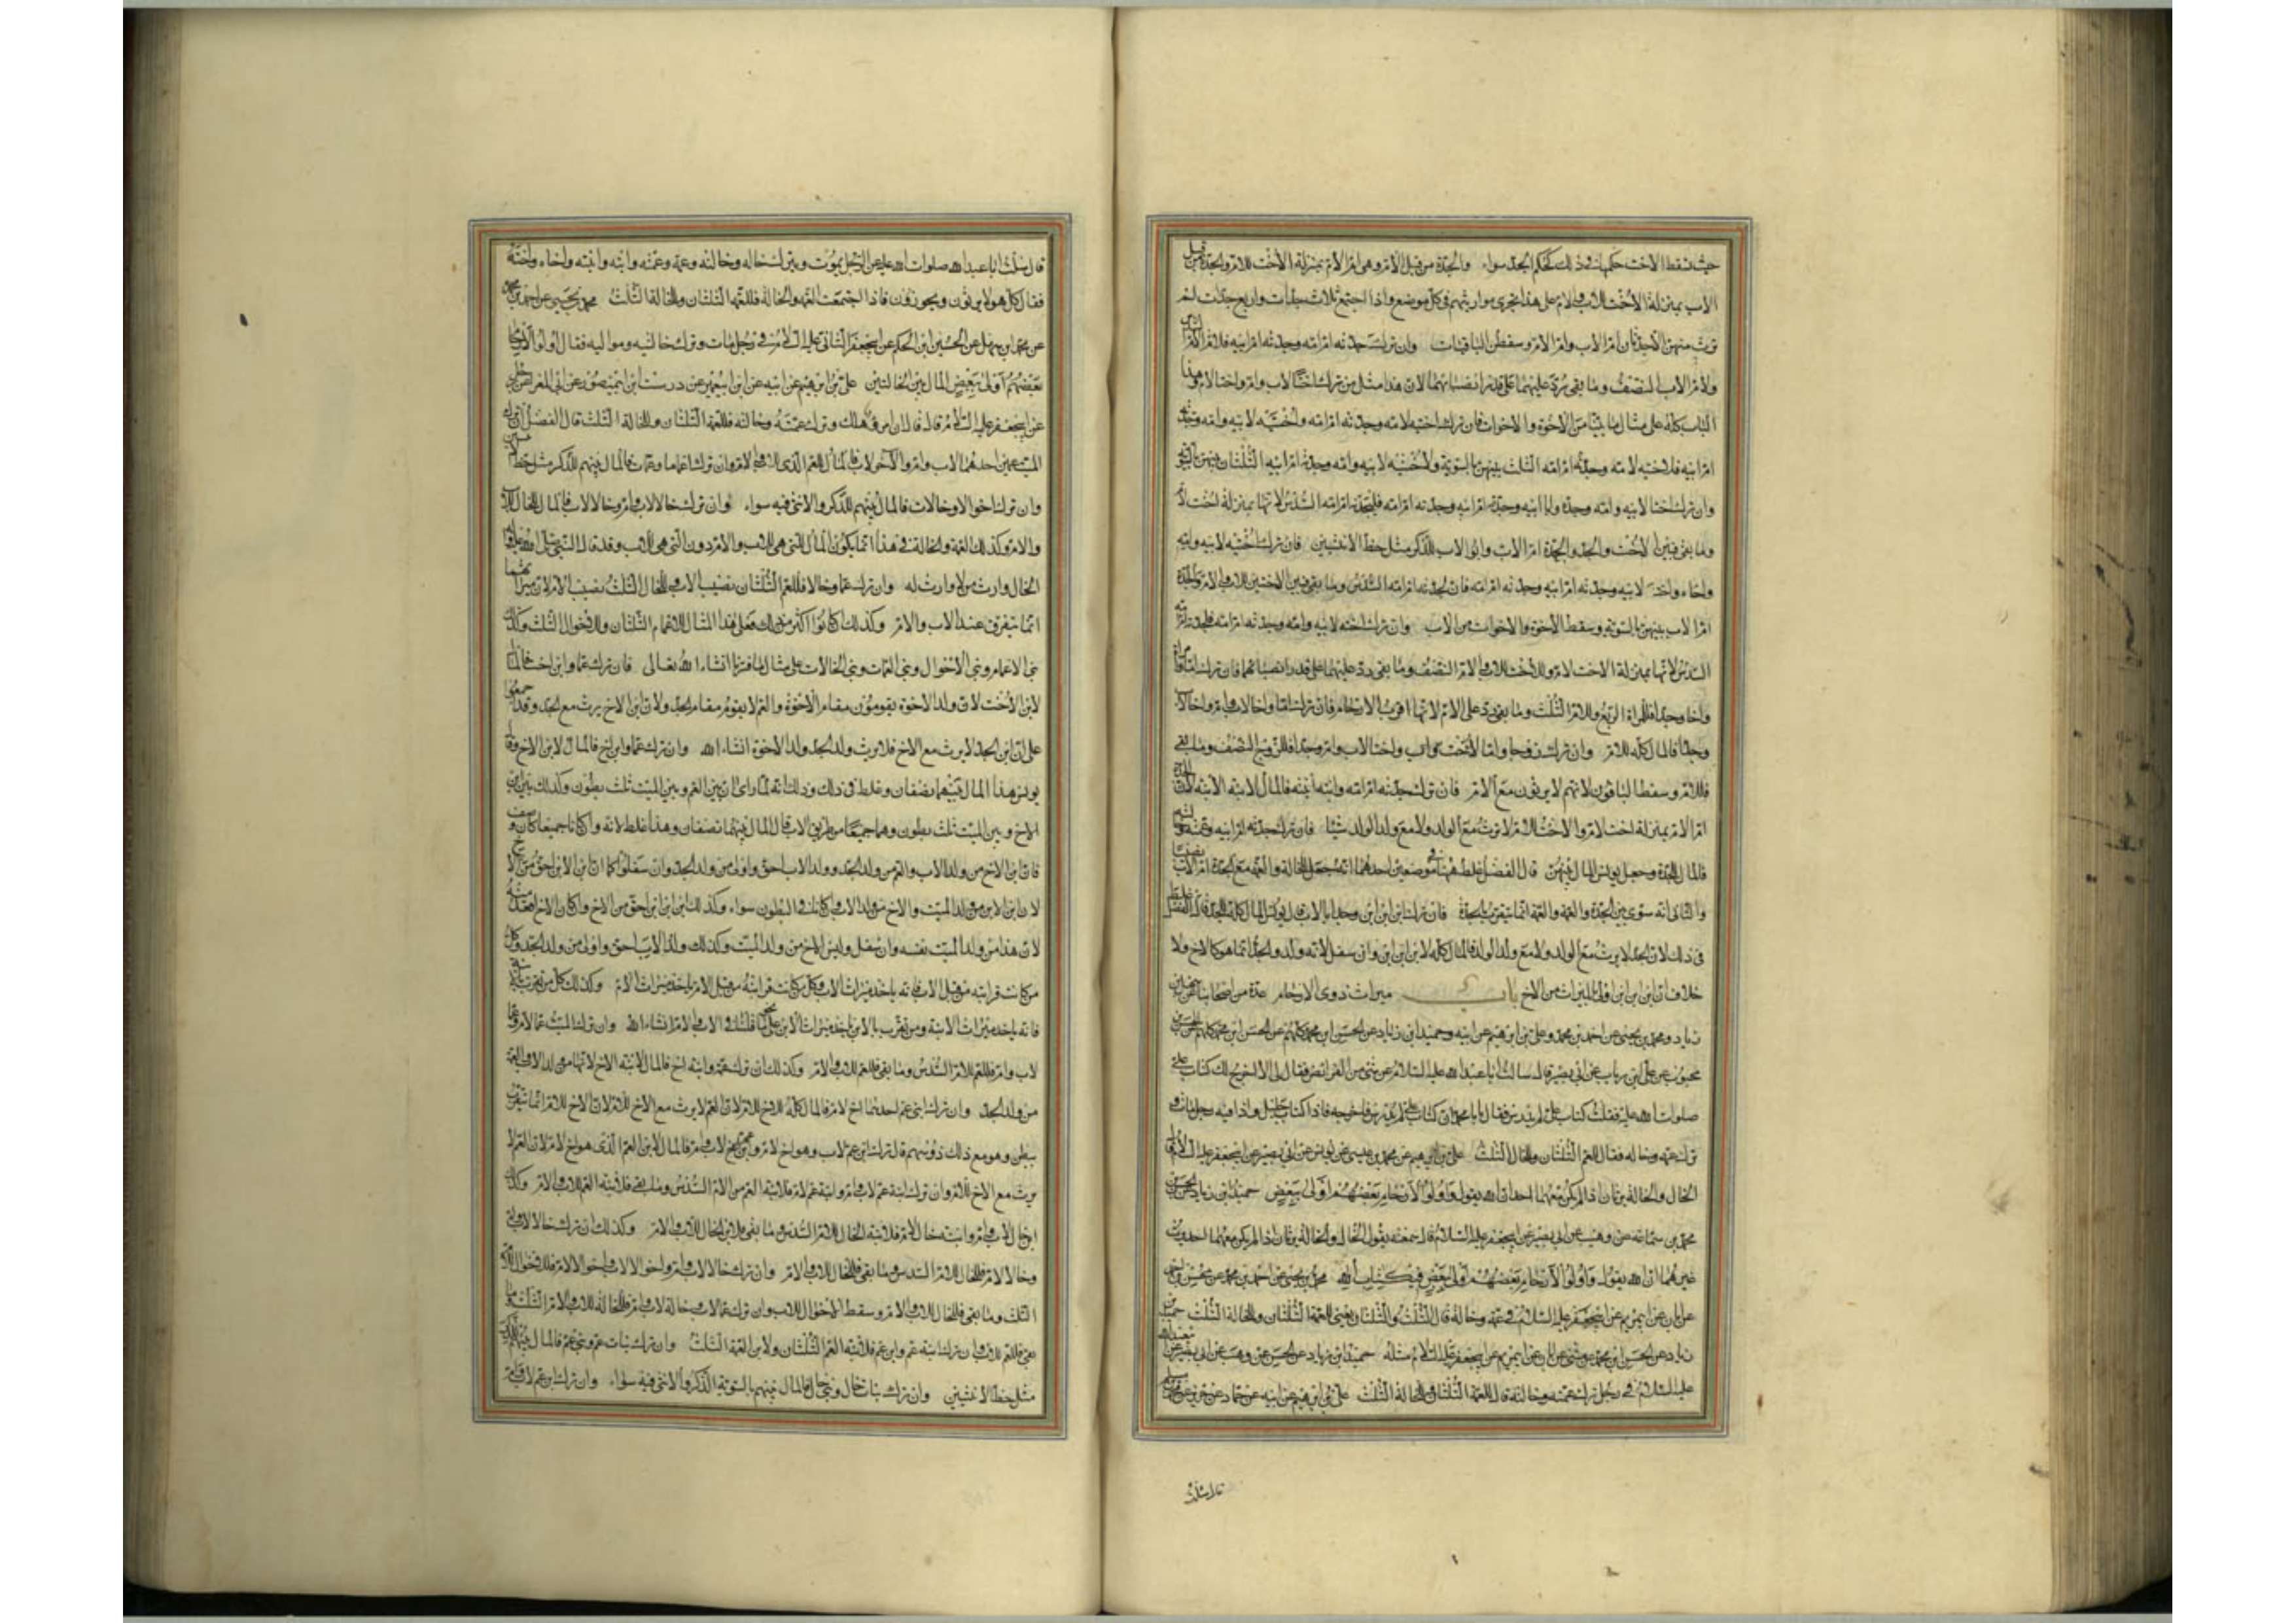 حيث تسقط الاخت حكمها في ذلك كحكم الجد سواء والجدة من قبل الام وهي ام الام بمنزلة الاخت للام والجدة من قبل
الاب بمنزلة الاخت للاب والام على هذا تجري مواريثهم في كل موضع واذا اجتمع ثلاث جدات واربع جدات لم
ترث منهن الا جدتان ام الاب وام الام وسقطن الباقيات وان ترك جدته ام امه وجدته ام ابيه فلام الام
ولام الاب النصف وما بقي يرد عليهما على قدر انصبائهما لان هذا مثل من ترك اختا لاب وام واختا لام وهذا
الباب كله على مثال ما بينا من الاخوة والاخوات فان ترك اختيه لامه وجدته ام امه واختيه لابيه وامه وجدته
ام ابيه فلاختيه لامه وجدته ام امه الثلث بينهن بالسوية ولاختيه لابيه وامه وجدته ام ابيه الثلثان بينهن بالسوية
وان ترك اختا لابيه وامه وجده ابا ابيه وجدته ام ابيه وجدته ام امه فلجدته ام امه السدس لانها بمنزلة اخت لام
وما بقي فبين الاخت والجد والجدة ام الاب وابي الاب للذكر مثل حظ الانثيين فان ترك اختيه لابيه وامه
واخاه واخته لابيه وجدته ام ابيه وجدته ام امه فان لجدته ام امه السدس وما بقي فبين الاختين للاب والام والجدة
ام الاب بينهن بالسوية وسقط الاخوة والاخوات من الاب وان ترك اخته لابيه وامه وجدته ام امه فلجدته ام امه
السدس لانها بمنزلة الاخت للام وللاخت للاب والام النصف وما بقي رد عليهما على قدر انصبائهما فان ترك امراة واما
واخا وجدا فللمراة الربع وللام الثلث وما بقي رد على الام لانها اقرب الارحام فان ترك اما واخا لاب وام واخا لاب
وجدا فالمال كله للام وان ترك زوجا واما واختا لاب وام وجدا فللزوج النصف وما بقي
فللام وسقط الباقون لانهم لا يرثون مع الام فان ترك جدته ام امه وابنة ابنته فالمال لابنة الابنة لان الجدة
ام الام بمنزلة اخت لام والاخت للام لا ترث مع الولد ولا مع ولد الولد شيئا فان ترك جدته ام ابيه وعمته وخالته
فالمال للجدة وجعل يونس المال بينهن قال الفضل غلط ههنا في موضعين احدهما انه جعل للخالة والعمة مع الجدة ام الاب نصيبا
والثاني انه سوى بين الجدة والعمة والعمة انما تتقرب بالجدة فان ترك ابن ابن ابن وجدا ابا الاب قال يونس المال كله للجد قال الفضل غلط
في ذلك لان الجد لا يرث مع الولد ولا مع ولد الولد فالمال كله لابن ابن ابن وان سفل لانه ولد والجد انما هو كالاخ ولا
خلاف ان ابن ابن ابن اولى بالميراث من الاخ باب ميراث ذوي الارحام عدة من اصحابنا عن سهل بن
زياد ومحمد بن يحيى عن احمد بن محمد وعلي بن ابرهيم عن ابيه وحميد ابن زياد عن الحسن ابن محمد كلهم عن الحسن بن
محبوب عن علي ابن رياب عن ابي بصير قال سالت ابا عبد الله عليه السلام عن شيء من الفرائض فقال لي الا اخرج لك كتاب علي
صلوات الله عليه فقلت كتاب علي لم يدرس فقال يا با محمد ان كتاب علي لم يدرس فاخرجه فاذا كتاب جليل واذا فيه رجل مات و
ترك عمه وخاله فقال للعم الثلثان وللخال الثلث علي بن ابرهيم عن محمد بن عيسى عن يونس عن ابي بصير عن ابي جعفر عليه السلام قال
الخال والخالة يرثان اذا لم يكن معهما احد ان الله يقول واولوا الارحام بعضهم اولى ببعض حميد ابن زياد عن الحسن بن
محمد بن سماعة عن وهيب عن ابي بصير عن ابي جعفر عليه السلام قال سمعته يقول الخال والخالة يرثان اذا لم يكن معهما احد يرث
غيرهما ان الله يقول واولوا الارحام بعضهم اولى ببعض في كتاب الله محمد بن يحيى عن احمد بن محمد عن محسن ابن احمد
عن ابان عن ابي مريم عن ابي جعفر عليه السلام في عمة وخالة قال الثلث والثلثان يعني للعمة الثلثان وللخالة الثلث حميد بن
زياد عن الحسن ابن محمد عن وشى عن ابان عن ابي مريم عن ابي جعفر عليه السلام مثله حميد ابن زياد عن الحسن عن وهيب عن ابي بصير عن ابي عبد الله
عليه السلام في رجل ترك عمته وخالته قال للعمة الثلثان وللخالة الثلث علي بن ابرهيم عن ابيه عن حماد عن حريز عن محمد بن مسلم
قال سئلت ابا عبد الله صلوات الله عليه عن الرجل يموت ويترك خاله وخالته وعمه وعمته وابنه وابنته واخاه واخته
فقال كل هولا يرثون ويحوزون فاذا اجتمعت العمة والخالة فللعمة الثلثان وللخالة الثلث محمد بن يحيى عن احمد بن محمد
عن محمد ابن سهل عن الحسين ابن الحكم عن ابي جعفر الثاني عليه السلام في رجل مات وترك خالتيه ومواليه فقال اولوا الارحام
بعضهم اولى ببعض المال بين الخالتين علي بن ابرهيم عن ابيه عن ابن ابي عمير عن درست ابن ابي منصور عن ابي المغرا عن رجل
عن ابي جعفر عليه السلام قال قال ان امرؤ هلك وترك عمته وخالته فللعمة الثلثان وللخالة الثلث قال الفضل ان ترك
الميت عمين احدهما لاب وام والاخر لاب فالمال للعم الذي للاب والام وان ترك اعماما وعمات فالمال بينهم للذكر مثل حظ الانثيين
وان ترك اخوالا وخالات فالمال بينهم للذكر والانثى فيه سواء وان ترك خالا لاب وام وخالا لاب فالمال للخال للاب
والام وكذلك العمة والخالة في هذا انما يكون المال للتي هي للاب والام دون التي هي للاب وقد قال النبي صلى الله عليه وآله
الخال وارث من لا وارث له وان ترك عما وخالا فللعم الثلثان نصيب الاب وللخال الثلث نصيب الام لان ميراثهما
انما يتفرق عند الاب والام وكذلك ان كانوا اكثر من ذلك فعلى هذا المثال للاعمام الثلثان وللاخوال الثلث وكذلك
بني الاعمام وبني الاخوال وبني العمات وبني الخالات على مثال ما فسرنا انشاء الله تعالى فان ترك عما وابن اخت فالمال
لابن الاخت لان ولد الاخوة يقومون مقام الاخوة والعم لا يقوم مقام الجد ولان ابن الاخ يرث مع الجد وقد اجمعوا
على ان ابن الجد لا يرث مع الاخ فلا يرث ولد الجد ولد الاخوة انشاء الله وان ترك عما وابن اخ فالمال لابن الاخ وقال
يونس هذا المال بينهما نصفان وغلط في ذلك وذلك انه لما راى ان بين العم وبين الميت ثلث بطون وكذلك بين ابن
الاخ وبين الميت ثلث بطون وهما جميعا من طريق الاب قال المال بينهما نصفان وهذا غلط لانه وان كانا جميعا كما وصف
فان ابن الاخ من ولد الاب والعم من ولد الجد وولد الاب احق واولى من ولد الجد وان سفلوا كما ان ابن الابن احق من الاخ
لان ابن الابن من ولد الميت والاخ من ولد الاب وان كانا في البطون سواء وكذلك ابن ابن ابن احق من الاخ وان كان الاخ اقعد منه
لان هذا من ولد الميت نفسه وان سفل وليس الاخ من ولد الميت وكذلك ولد الاب احق واولى من ولد الجد وكل
من كانت قرابته من قبل الاب فانه ياخذ ميراث الاب وكل من كانت قرابته من قبل الام ياخذ ميراث الام وكذلك كل من تقرب بالابنة
فانه ياخذ ميراث الابنة ومن تقرب بالابن ياخذ ميراث الابن على نحو ما قلنا في الاب والام انشاء الله وان ترك الميت عما لام وعما
لاب وام فللعم للام السدس وما بقي فللعم للاب والام وكذلك ان ترك عمة وابنة اخ فالمال لابنة الاخ لانها من ولد الاب والعمة
من ولد الجد وان ترك ابني عم احدهما اخ لام فالمال كله للاخ للام لان العم لا يرث مع الاخ للام لان الاخ للام انما يتقرب
ببطن وهو مع ذلك ذو سهم قال ترك ابن عم لاب وهو اخ لام وابن عم لاب وام فالمال لابن العم الذي هو اخ لام لان العم لا
يرث مع الاخ للام وان ترك ابنة عم لاب وام وابنة عم لام فلابنة العم من الام السدس وما بقي فلابنة العم للاب والام وكذلك
ابن خال لاب وام وابنة خال لام فلابنة الخال للام السدس وما بقي فلابن الخال للاب والام وكذلك ان ترك خالا لاب وام
وخالا لام فللخال للام السدس وما بقي فللخال للاب والام وان ترك خالا لاب وام واخوالا لاب واخوالا لام فللاخوال للام
الثلث وما بقي فللخال للاب والام وسقط الاخوال للاب وان ترك عما لاب وخالة لاب وام فللخالة للاب والام الثلث وما
بقي فللعم للاب وان ترك ابنة عم وابن عمة فلابنة العم الثلثان ولابن العمة الثلث وان ترك بنات عم وبني عم فالمال بينهم للذكر
مثل حظ الانثيين وان ترك بنات خال وبني خال فالمال بينهم بالسوية الذكر والانثى فيه سواء وان ترك ابن عم لاب وام
قال سئلت